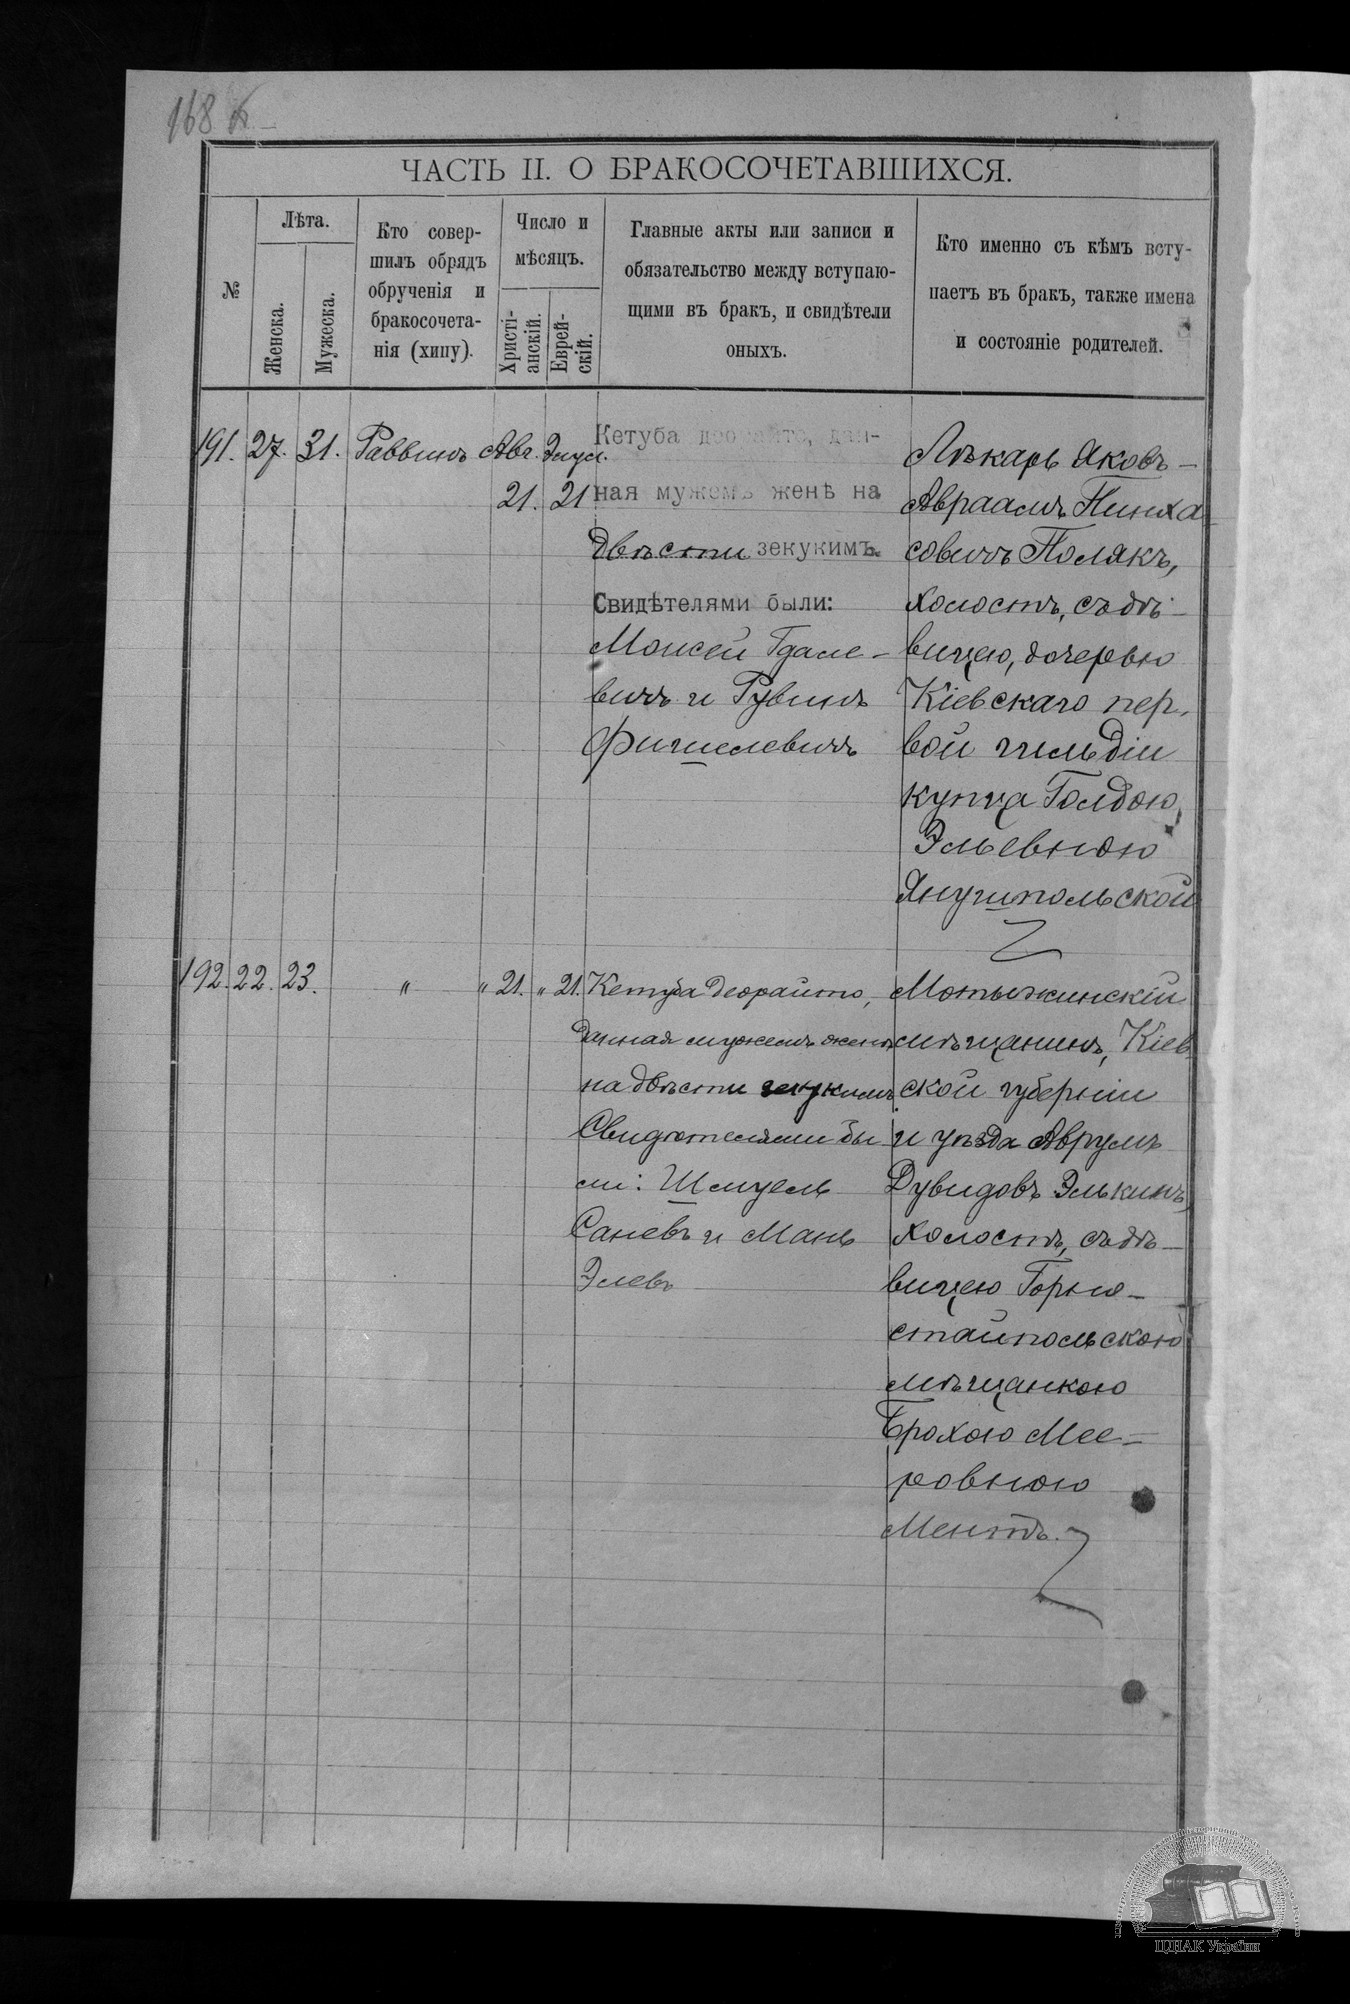 168
ЧАСТЬ II. О БРАКОСОЧЕТАВШИХСЯ.
№
Лѣта.
Женска.
Мужеска.
Кто совер-
шилъ обрядъ
обрученія и
бракосочета-
нія (хипу).
Число и
мѣсяцъ.
Христі-
анскій.
Еврей-
скій.
Главные акты или записи и
обязательство между вступаю-
щими въ бракъ, и свидѣтели
оныхъ.
Кто именно съ кѣмъ всту-
паетъ въ бракъ, также имена
и состояніе родителей.
191. 27. 31. Раввинъ Авг. Элул.
21. 21
Кетуба деорайто, дан-
ная мужемъ женѣ на
двѣсти зекукимъ.
Свидѣтелями были:
Моисей Гдале-
вичъ и Рувинъ
Фишелевичъ
Лѣкарь Яковъ-
Авраамъ Пинха-
совичъ Полякъ,
холостъ, съ дѣ-
вицею, дочерью
Кіевскаго пер-
вой гильдіи
купца Голдою
Эльевною
Янушпольской
192. 22. 23. " " 21. " 21.
Кетуба деорайто,
данная мужемъ женѣ
на двѣсти зекукимъ.
Свидѣтелями бы
ли: Шмуель
Саневъ и Мань
Элевъ
Мотыжинскій
мѣщанинъ, Кіев
ской губерніи
и уѣзда Аврумъ
Дувидовъ Элькинъ,
холостъ, съ дѣ-
вицею Горно-
стайпольскою
мѣщанкою
Брохою Мее-
ровною
Ментъ.
ЦДІАК України